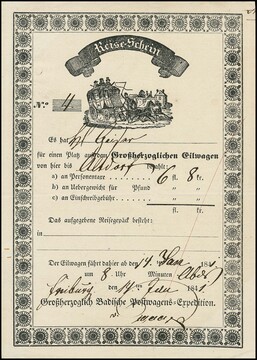 Reise-Schein
No. 4
Es hat
für einen Platz auf dem Großherzoglichen Eilwagen
von hier bis bezahlt:
a) an Personentaxe 6 fl. 8 kr.
b) an Uebergewicht für Pfund " "
c) an Einschreibgebühr " "
fl. kr.
Das aufgegebene Reisegepäck besteht:
in
Der Eilwagen fährt dahier ab den 14. Jan 184
um 8 Uhr Minuten Abds
Freiburg den 14. Jan 184
Großherzoglich Badische Postwagens-Expedition.